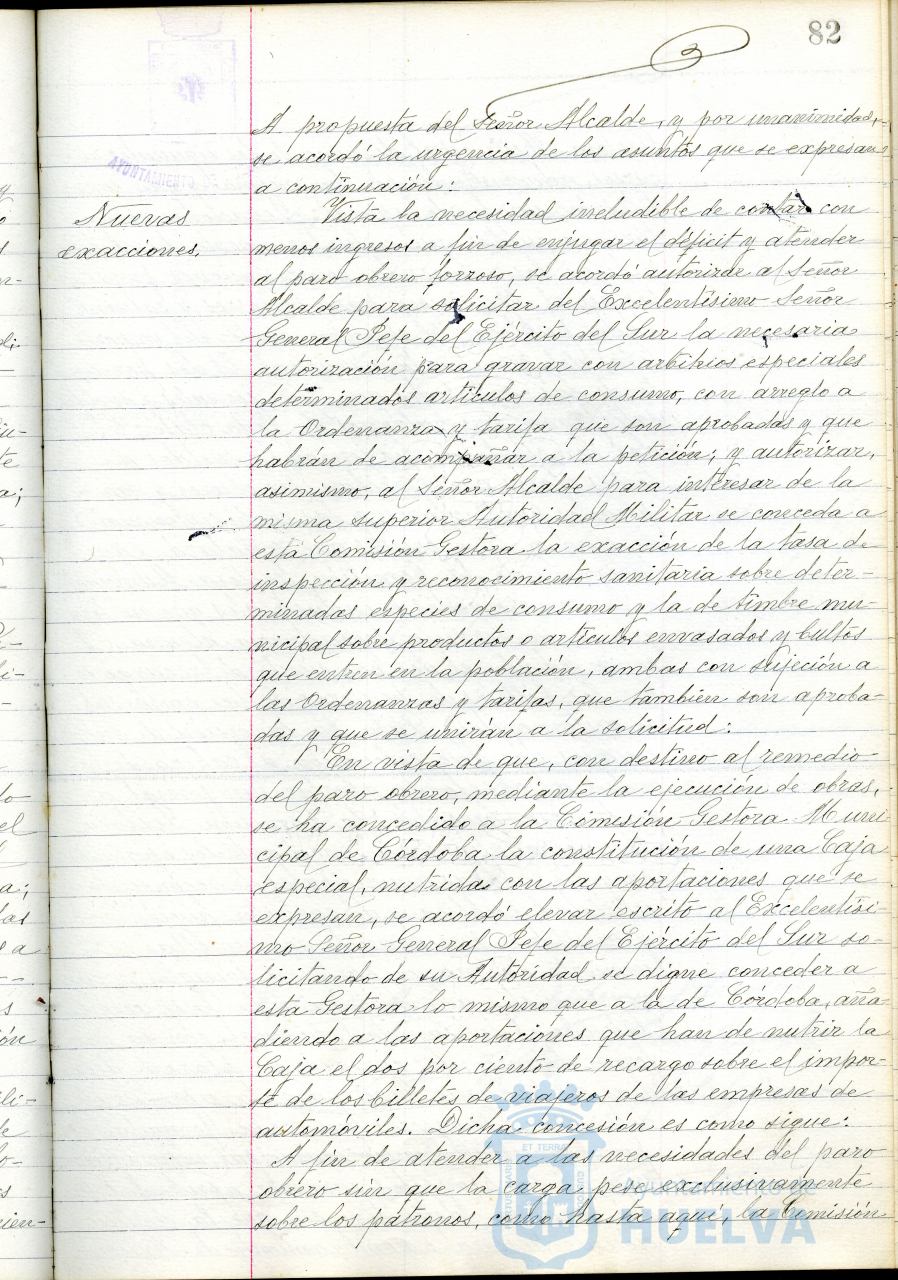 82
A propuesta del Señor Alcalde, y por unanimidad,
se acordó la urgencia de los asuntos que se expresan
a continuación:
Nuevas
exacciones.
Vista la necesidad ineludible de contar con
menos ingresos a fin de enjugar el déficit y atender
al paro obrero forzoso, se acordó autorizar al Señor
Alcalde para solicitar del Excelentísimo Señor
General Jefe del Ejército del Sur la necesaria
autorización para gravar con arbitrios especiales
determinados artículos de consumo, con arreglo a
la Ordenanza y tarifa que son aprobadas y que
habrán de acompañar a la petición; y autorizar,
asimismo, al Señor Alcalde para interesar de la
misma superior Autoridad Militar se conceda a
esta Comisión Gestora la exacción de la tasa de
inspección y reconocimiento sanitaria sobre deter-
minadas especies de consumo y la de timbre mu-
nicipal sobre productos o artículos envasados y bultos
que entren en la población, ambas con sujeción a
las Ordenanzas y tarifas, que tambien son aproba-
das y que se unirán a la solicitud:
En vista de que, con destino al remedio
del paro obrero, mediante la ejecución de obras,
se ha concedido a la Comisión Gestora Muni
cipal de Córdoba la constitución de una Caja
especial, nutrida con las aportaciones que se
expresan, se acordó elevar escrito al Excelentísi-
mo Señor General Jefe del Ejército del Sur so-
licitando de su Autoridad se digne conceder a
esta Gestora lo mismo que a la de Córdoba, aña-
diendo a las aportaciones que han de nutrir la
Caja el dos por ciento de recargo sobre el impor-
te de los billetes de viajeros de las empresas de
automoviles. Dicha concesión es como sigue:
A fin de atender a las necesidades del paro
obrero sin que la carga pese exclusivamente
sobre los patronos, como hasta aquí, la Comisión
AYUNTAMIENTO DE
Ayuntamiento de
HUELVA